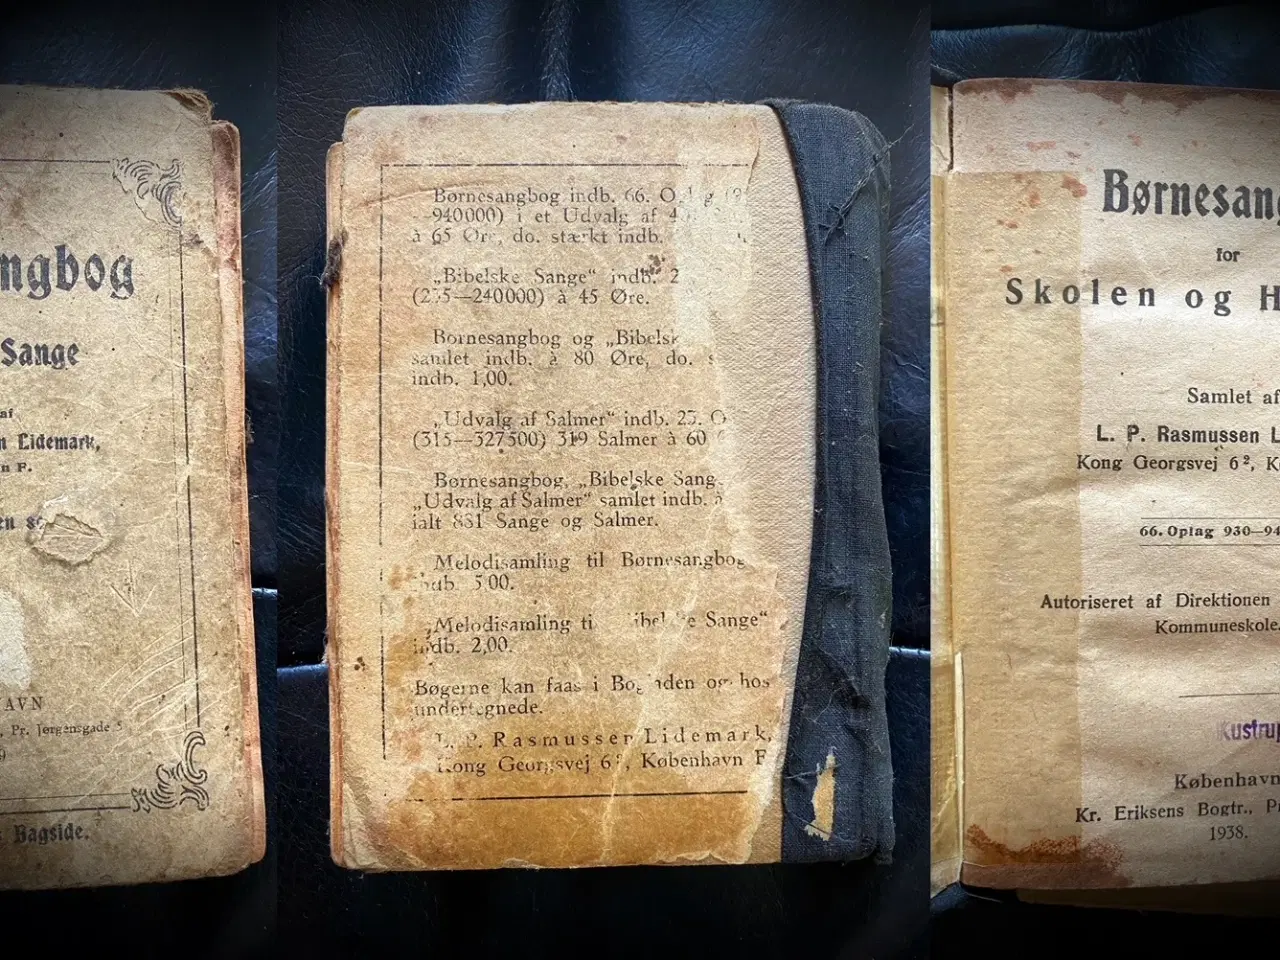 ngbog
Sange
af
n Lidemark,
n F.
en
AVN
, Pr. Jørgensgade 5
9
Bagside.
Børnesangbog indb. 66.
—940000) i et Udvalg af
à 65 Øre, do. stærkt indb.
„Bibelske Sange“ indb.
—240000) à 45 Øre.
Børnesangbog og
samlet indb. à 80 Øre, do.
indb. 1,00.
„Udvalg af Salmer“ indb. 23.
(315—327500) 319 Salmer à 60
Børnesangbog, „Bibelske Sang
„Udvalg af Salmer“ samlet indb. à
ialt 831 Sange og Salmer.
Melodisamling til Børnesangbog
„Melodisamling Sange“
indb. 2,00.
Bøgerne kan faas i og hos
undertegnede.
L. P. Rasmussen Lidemark,
Kong Georgsvej København F
Børnesan
for
Skolen og H
Samlet af
L. P. Rasmussen L
Kong Georgsvej 6², K
66. Oplag 930—94
Autoriseret af Direktionen
Kommuneskole
Kustru
København
Kr. Eriksens Bogtr., P
1938.